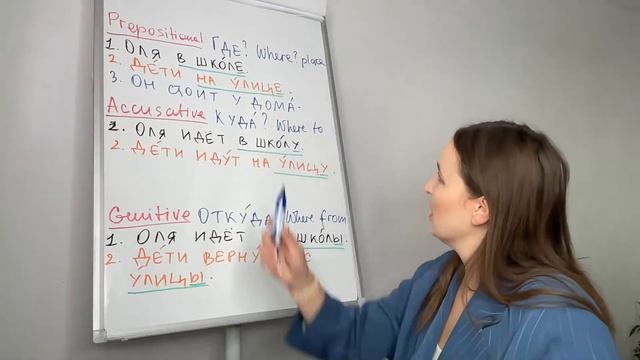 Prepositional ГДЕ? Where? place
1. ОЛЯ В ШКО́ЛЕ
2. ДЕ́ТИ НА У́ЛИЦЕ.
3. ОН СТОИТ У ДОМА́.
Accusative КУДА́? Where to
1. ОЛЯ ИДЁТ В ШКО́ЛУ.
2. ДЕ́ТИ ИДУ́Т НА У́ЛИЦУ.
Genitive ОТКУ́ДА Where from
1. ОЛЯ ИДЁТ ШКО́ЛЫ.
2. ДЕ́ТИ С
У́ЛИЦЫ.